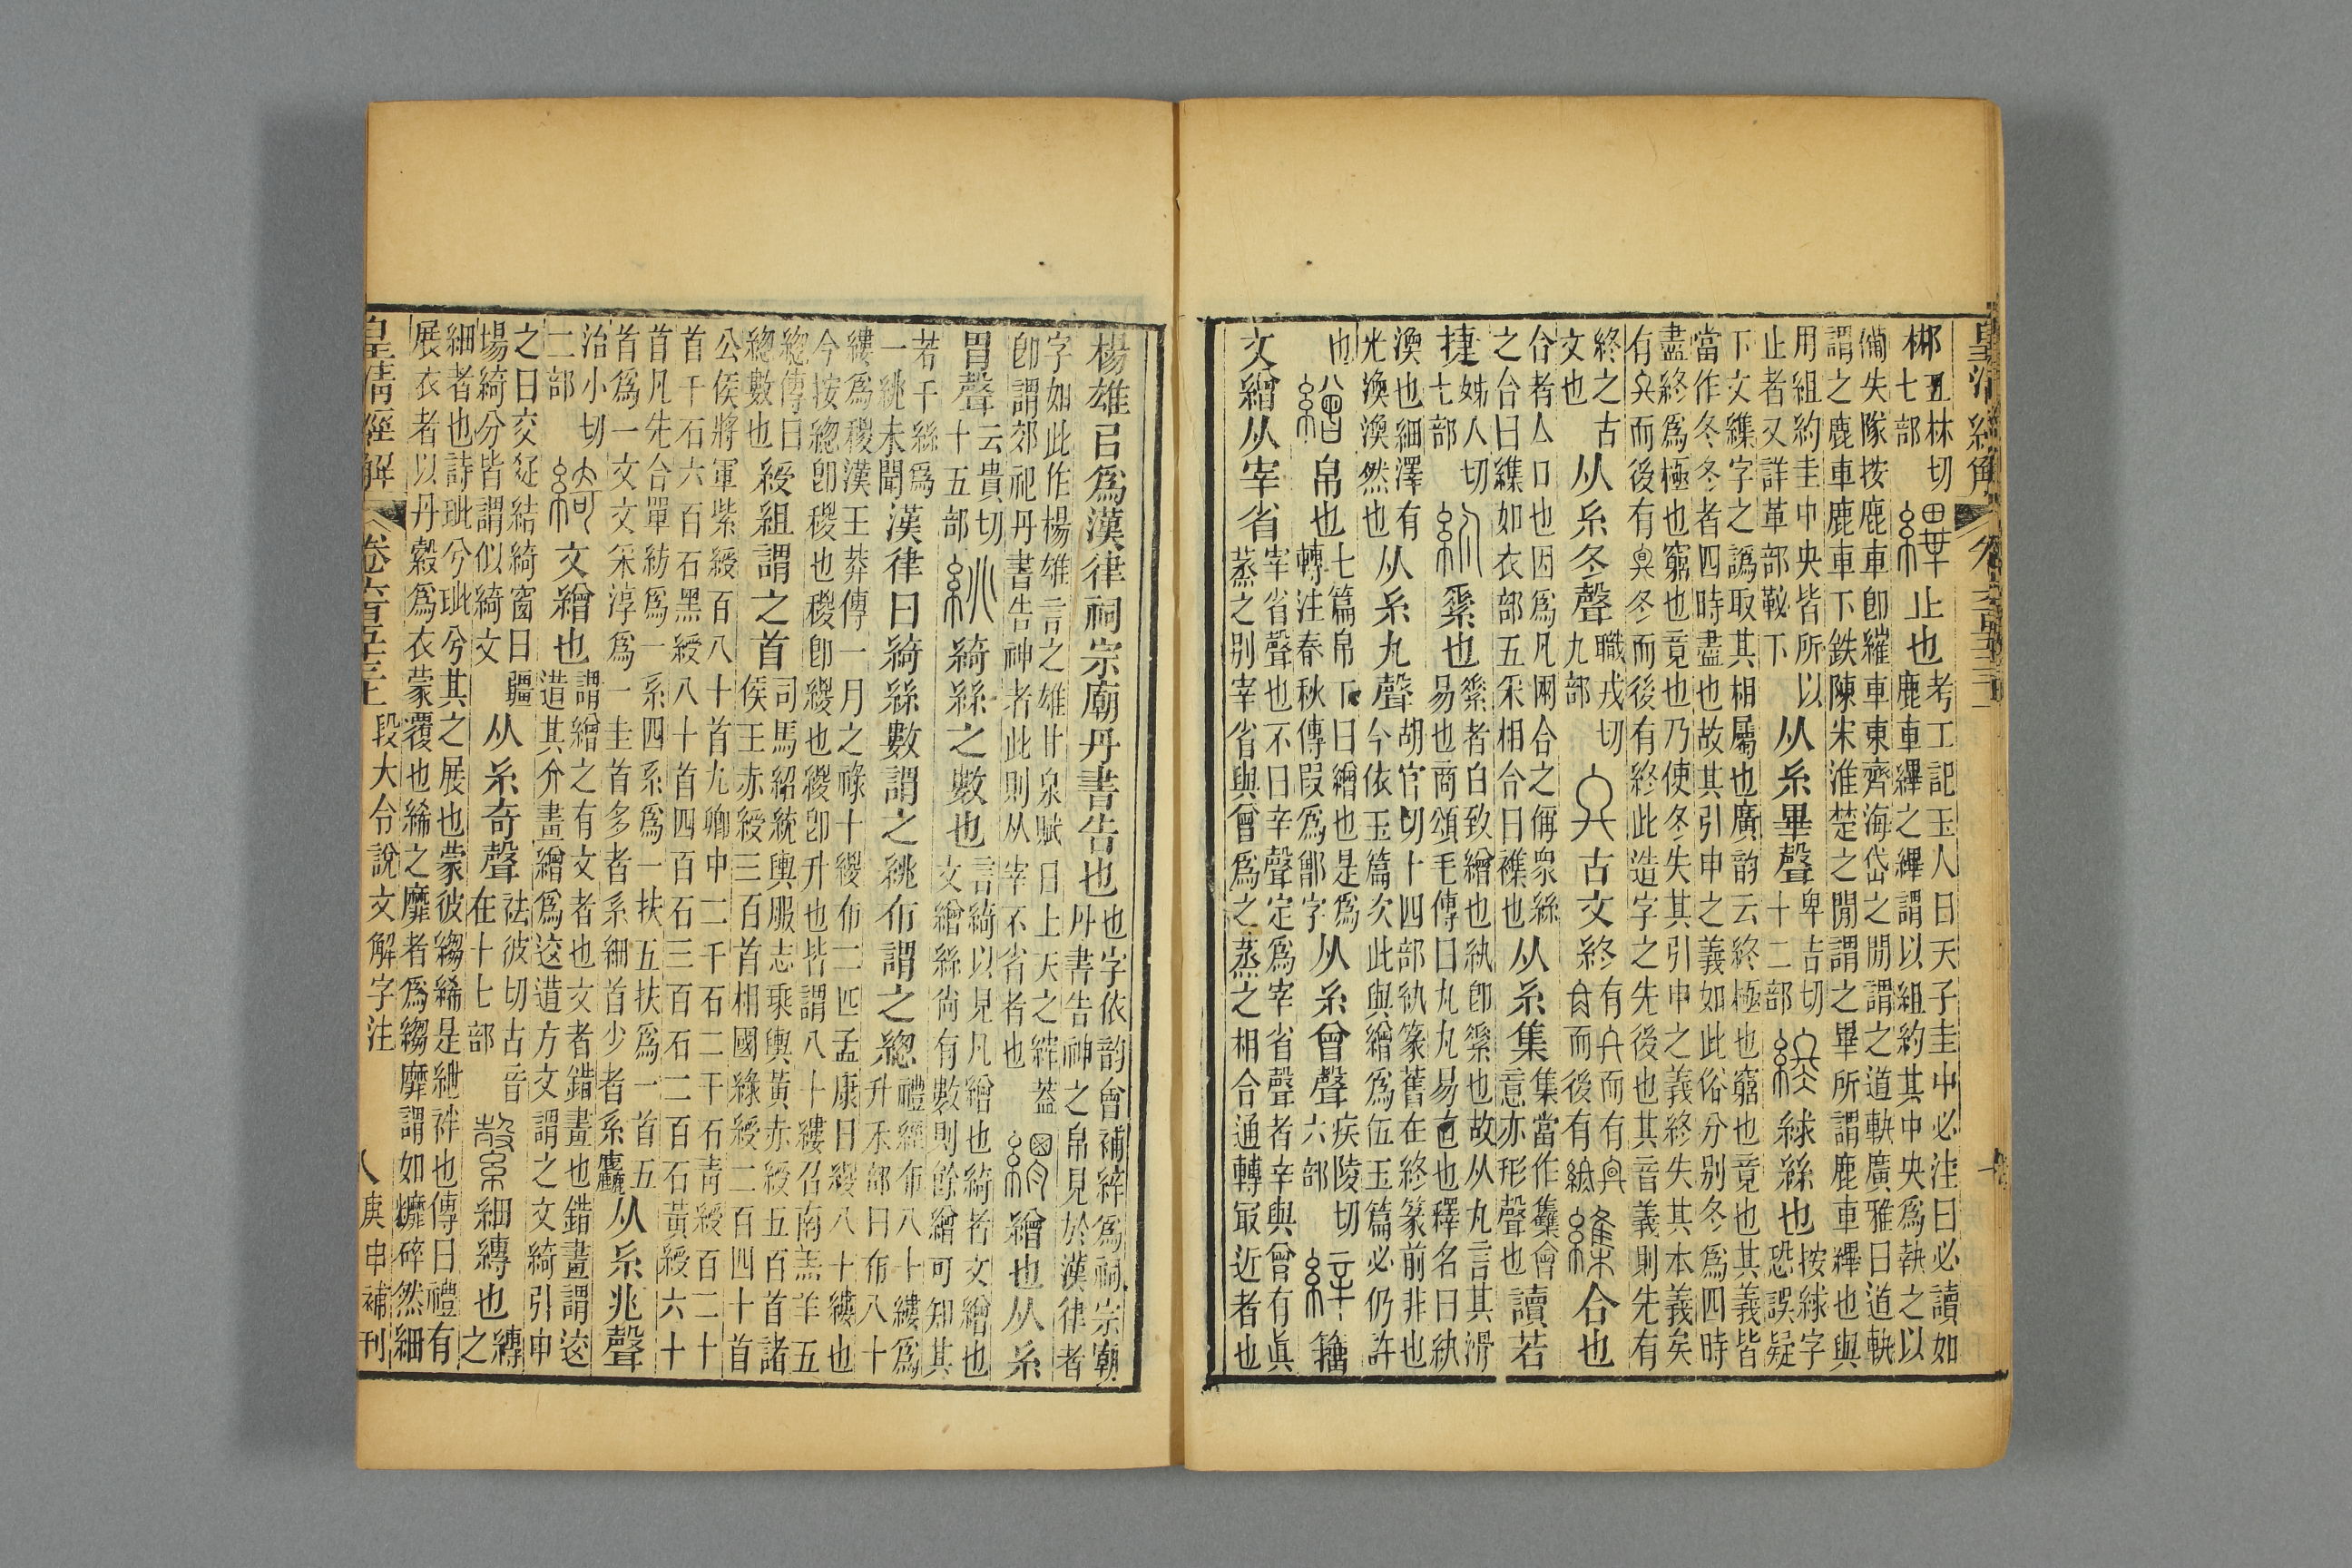 皇清經解
郴
丑林切
七部
縪止也
考工記玉人曰天子圭中必注曰必讀如
鹿車縪之縪謂以組約其中央爲執之以
備失隊按鹿車卽䌟車東齊海岱之閒謂之道軌廣雅曰道軌
謂之鹿車鹿車下鉄陳宋淮楚之閒謂之畢所謂鹿車縪也與
用組約圭中央皆所以
止者又詳革部䩛下
从糸畢聲
卑吉切
十二部
終絿絲也
按絿字
恐誤疑
下文䌖字之譌取其相屬也廣韵云終極也窮也竟也其義皆
當作冬冬者四時盡也故其引申之義如此俗分别冬爲四時
盡終爲極也窮也竟也乃使冬失其引申之義終失其本義矣
有而後有冬而後有終此造字之先後也其音義則先有
終之古
文也
从糸冬聲
職戎切
九部
古文終
䌖合也
合者亼口也因爲凡网合之偁衆絲
之合曰䌖如衣部五采相合曰䙅也
从糸集
集當作雧會
意亦形聲也
讀若
捷
姊入切
七部
紈素也
素者白致繒也紈卽素也故从丸言其滑
易也商頌毛傳曰丸丸易直也釋名曰紈
渙也細澤有
光渙渙然也
从糸丸聲
胡官切十四部紈篆舊在終篆前非也
今依玉篇次此與繒爲伍玉篇必仍許
也
繒帛也
七篇帛下曰繒也是爲
轉注春秋傳叚爲鄫字
从糸曾聲
疾陵切
六部
縡籒
文繒从宰省
宰省聲也不曰辛聲定爲宰省聲者辛與曾有眞
蒸之别宰省省與曾爲之蒸之相合通轉㝡近者也
楊雄㠯爲漢律祠宗廟丹書告也
也字依韵會補縡爲祠宗廟
丹書告神之帛見於漢律者
字如此作楊雄言之雄甘泉賦曰上天之縡蓋
卽謂郊祀丹書告神者此則从宰不省者也
緭繒也从糸
胃聲
云貴切
十五部
絩綺絲之數也
言綺以見凡繒也綺者文繒也
文繒絲尙有數則餘繒可知其
若干絲爲
一絩未聞
漢律曰綺絲數謂之絩布謂之緫
禮經布八十縷爲
升禾部曰布八十
縷爲稯漢王莽傳一月之祿十緵布二匹孟康曰緵八十縷也
今按緫卽稯也稯卽緵也緵卽升也皆謂八十縷召南羔羊五
緫傳曰
緫數也
綬組謂之首
司馬紹統輿服志乘輿黃赤綬五百首諸
侯王赤綬三百首相國綠綬二百四十首
公侯將軍紫綬百八十首九卿中二千石二千石靑綬百二十
首千石六百石黑綬八十首四百石三百石二百石黃綬六十
首凡先合單紡爲一系四系爲一扶五扶爲一首五
首爲一文文采淳爲一圭首多者系細首少者系麤
从糸兆聲
治小切
二部
綺文繒也
謂繒之有文者也文者錯畫也錯畫謂逡
造其介畫繒爲逡造方文謂之文綺引申
之曰交疑結綺窗曰疆
場綺分皆謂似綺文
从糸奇聲
袪彼切古音
在十七部
縠細縳也
縳
之
細者也詩玼兮玼兮其之展也蒙彼縐絺是紲袢也傳曰禮有
展衣者以丹縠爲衣蒙覆也絺之靡者爲縐靡謂如㸏碎然細
皇淸經解
卷六百五十三上
段大令說文解字注
八
庚申補刊